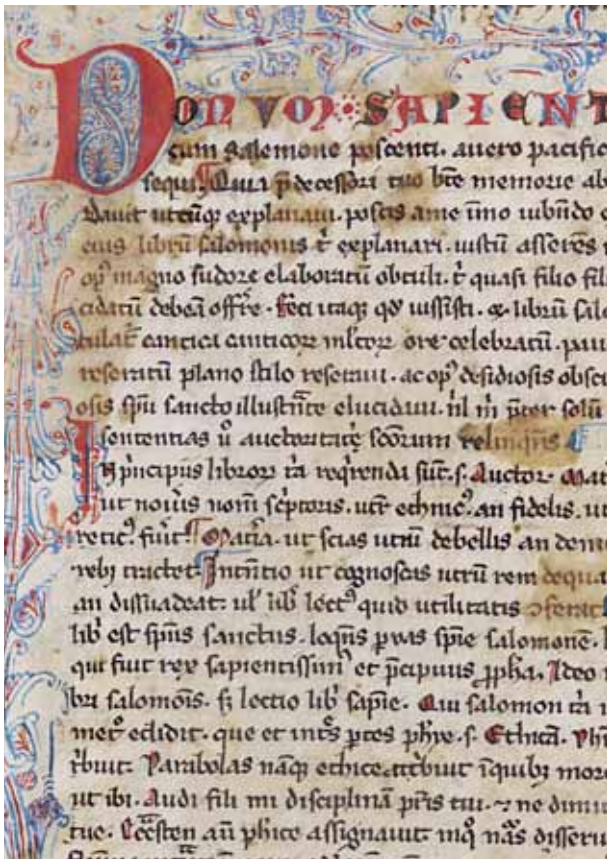 DONVM SAPIENT
cum salemone poscenti. auero pacific
sequi. Quia p̄decessori tuo bt̄e memorie ab
Dauit utcūq; explanaui. poscis ame īmo iubn̄do e
eius librū salomonis ⁊ explanari. iustū asserens
op᾽ magno sudore elaboratū obtuli. ⁊ quasi filio fil
cidatū debeā offr̄e. feci itaq; qd᾽ iussisti. ⁊ librū salo
cantica canticoꝝ ml̄toꝝ ore celebratū. pau
reseratū plano stilo reseraui. ac op᾽ desidiosis obscu
osis spū sancto illustn̄te elucidaui. nl̄ m̄ p̄ter solū
sententias ū auctoritatē scōrum relinqn̄s
In p̄ncipiis libroꝝ tā reqͥrenda sūt. s. Auctor. Mat
ut noueͥs nom̄ sc̄ptoris. utͬ ethnic᾽. an fidelis. ut
retic᾽. fuit. Matͥa. ut scias utrū debellis an dem
reb᾽ tractet. Intēntio ut cognoscas utrū rem dequa
an dissuadeat. ul᾽ lib᾽ lect᾽ quid utilitatis ꝯferat
lib᾽ est sp̄us sanctus. loqn̄s p uas sp̄ie salomonē.
qui fuit rex sapientissim᾽ et p̄cipuus ꝓpha. Ideo
bri salomōis. s; lectio lib᾽ sapie. Qui salomon tͥa
met᾽ edidit. que et int᾽ ptes phye. s. Ethicā. Phi
t̄buit. Parabolas nāq; ethice attͥbuit īquib; more
ut ibi. Audi fili mi disciplinā pr̄is tui. ⁊ ne dimit
tue. au phice assignauit īnq᾽ nāˢ disseru